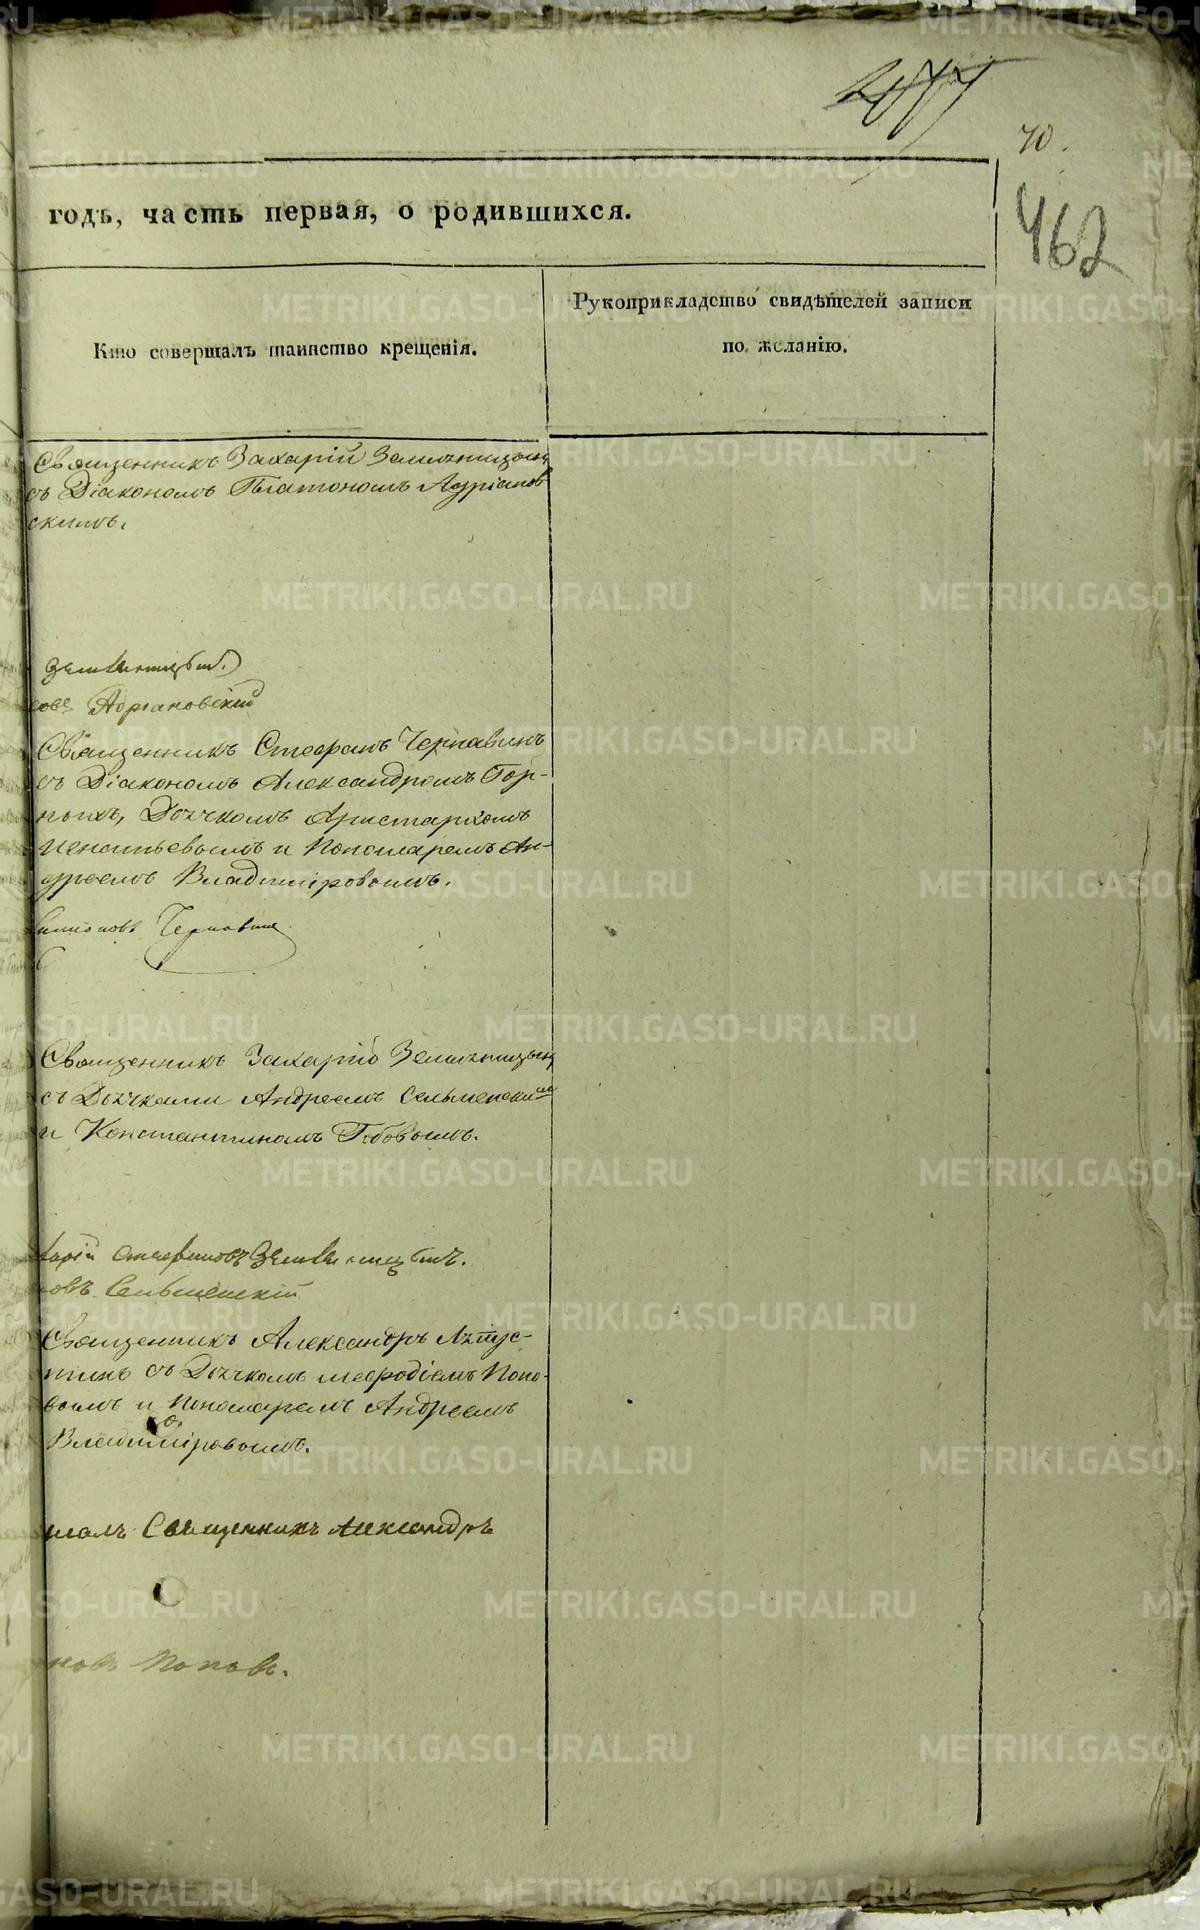 70.
462
годъ, часть первая, о родившихся.
Кто совершалъ таинство крещенія.
Рукоприкладство свидѣтелей записи
по желанію.
Священникъ Захарій Землѧницынъ
съ Діакономъ Платономъ Адріанов
скимъ.
Адріановскій
Священникъ Стефанъ Чернавинъ
съ Діакономъ Александромъ Гор-
ныхъ, Дьячкомъ Аристархомъ
Игнатьевымъ и Пономаремъ Ан-
дреемъ Владиміровымъ.
Чернавинъ
Священникъ Захарій Землѧницынъ
съ Дьячками Андреемъ Сельменскимъ
и Константиномъ Поповымъ.
Стефановъ
новъ Сельменскій
Священникъ Александръ
съ Дьячкомъ Меѳодіемъ Попо-
вымъ и Пономаремъ Андреемъ
Владиміровымъ.
Священникъ Александръ
новъ Поповъ.
METRIKI.GASO-URAL.RU